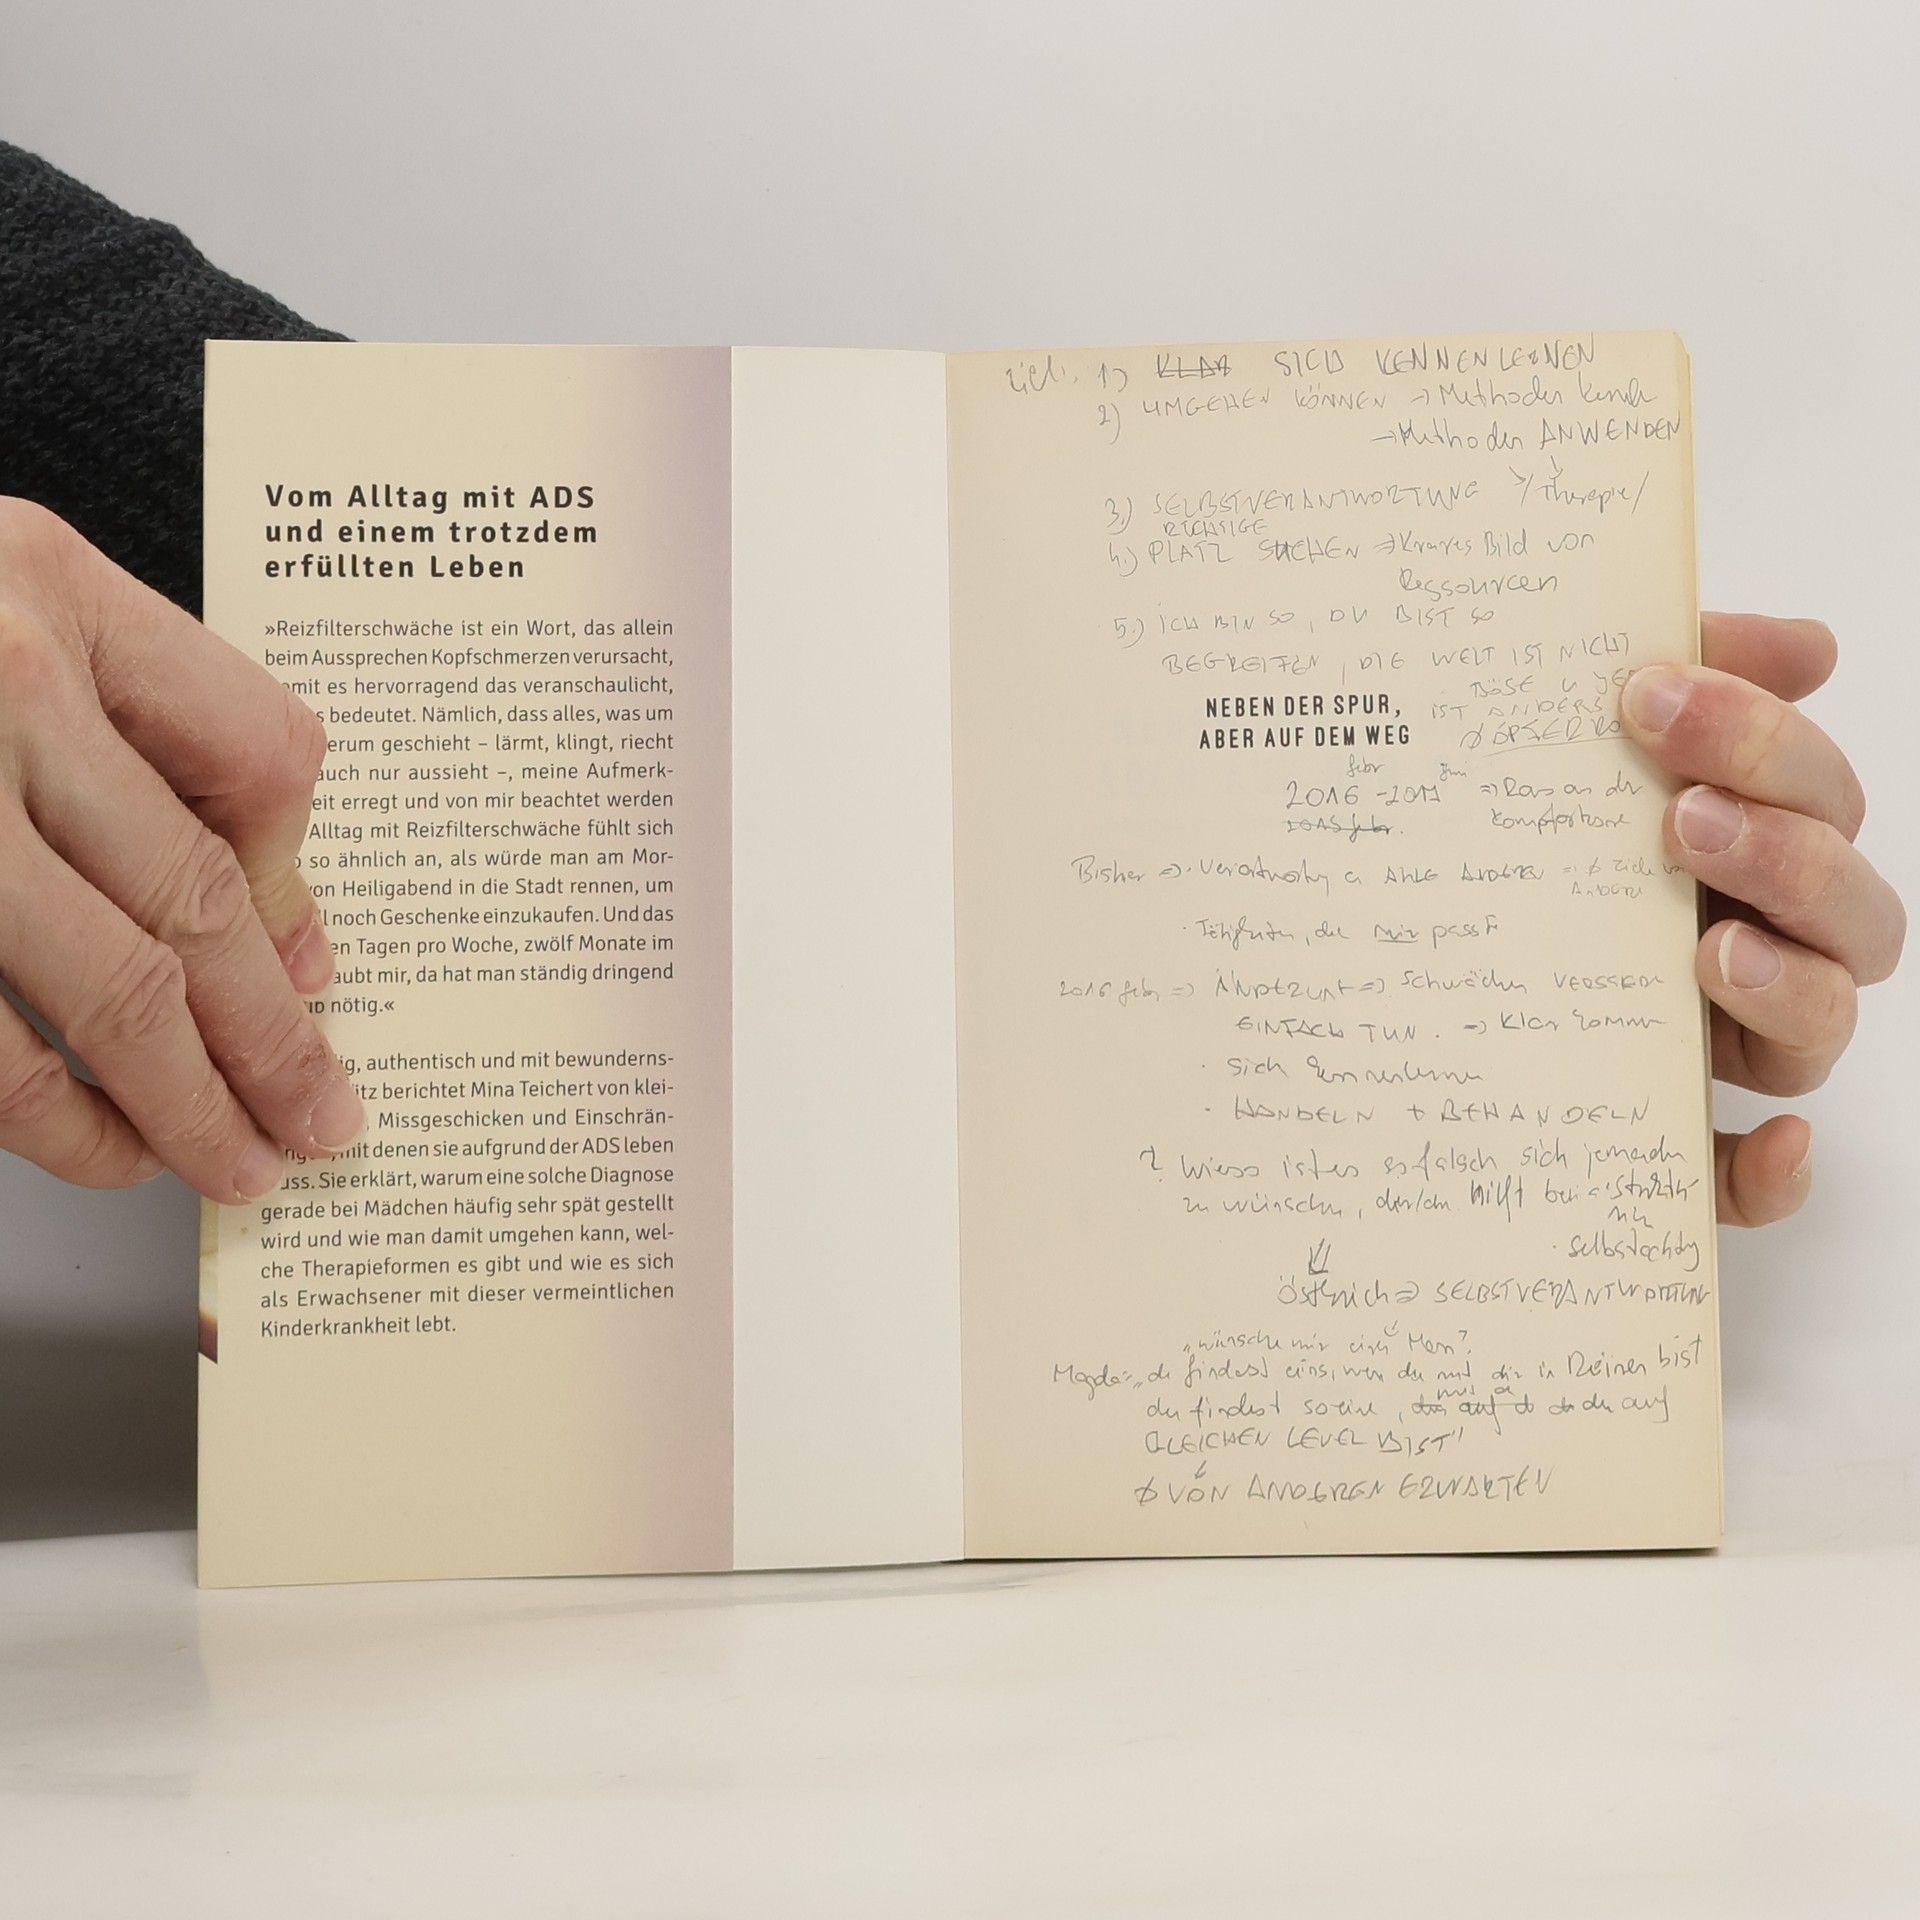 Vom Alltag mit ADS
und einem trotzdem
erfüllten Leben
»Reizfilterschwäche ist ein Wort, das allein
beim Aussprechen Kopfschmerzen verursacht,
mit es hervorragend das veranschaulicht,
s bedeutet. Nämlich, dass alles, was um
erum geschieht – lärmt, klingt, riecht
auch nur aussieht –, meine Aufmerk-
eit erregt und von mir beachtet werden
Alltag mit Reizfilterschwäche fühlt sich
so ähnlich an, als würde man am Mor-
von Heiligabend in die Stadt rennen, um
ll noch Geschenke einzukaufen. Und das
en Tagen pro Woche, zwölf Monate im
aubt mir, da hat man ständig dringend
nötig.«
ig, authentisch und mit bewunderns-
itz berichtet Mina Teichert von klei-
, Missgeschicken und Einschrän-
mit denen sie aufgrund der ADS leben
uss. Sie erklärt, warum eine solche Diagnose
gerade bei Mädchen häufig sehr spät gestellt
wird und wie man damit umgehen kann, wel-
che Therapieformen es gibt und wie es sich
als Erwachsener mit dieser vermeintlichen
Kinderkrankheit lebt.
Ziel: 1) KLAR SICH KENNENLERNEN
2) UMGEHEN KÖNNEN → Methoden
→ Methoden ANWENDEN
3.) SELBSTVERANTWORTUNG /Therapie/
RICHTIGE
4.) PLATZ SUCHEN ⇒ Bild von
Ressourcen
5.) ICH BIN SO, DU BIST SO
BEGREIFEN, DIE WELT IST NICHT
BÖSE
IST ANDERS
NEBEN DER SPUR,
ABER AUF DEM WEG
febr
2016 - 2017 ⇒ Raus aus der
Komfortzone
Bisher ⇒ ALLE ANDEREN
die mir passt
2016 febr ⇒ ⇒ Schwächen
EINFACH TUN. ⇒ Klar kommen
· sich kennenlernen
· HANDELN + BEHANDELN
? Wieso ist es so falsch sich jemanden
zu wünschen, der/den hilft
SELBSTVERANTWORTUNG
"wünsche mir einen Mann?
Magda: "du findest eins, wenn du mit dir in Reinen bist
du findest so eine, du auf
GLEICHEN LEVEL BIST"
VON ANDEREN ERWARTEN